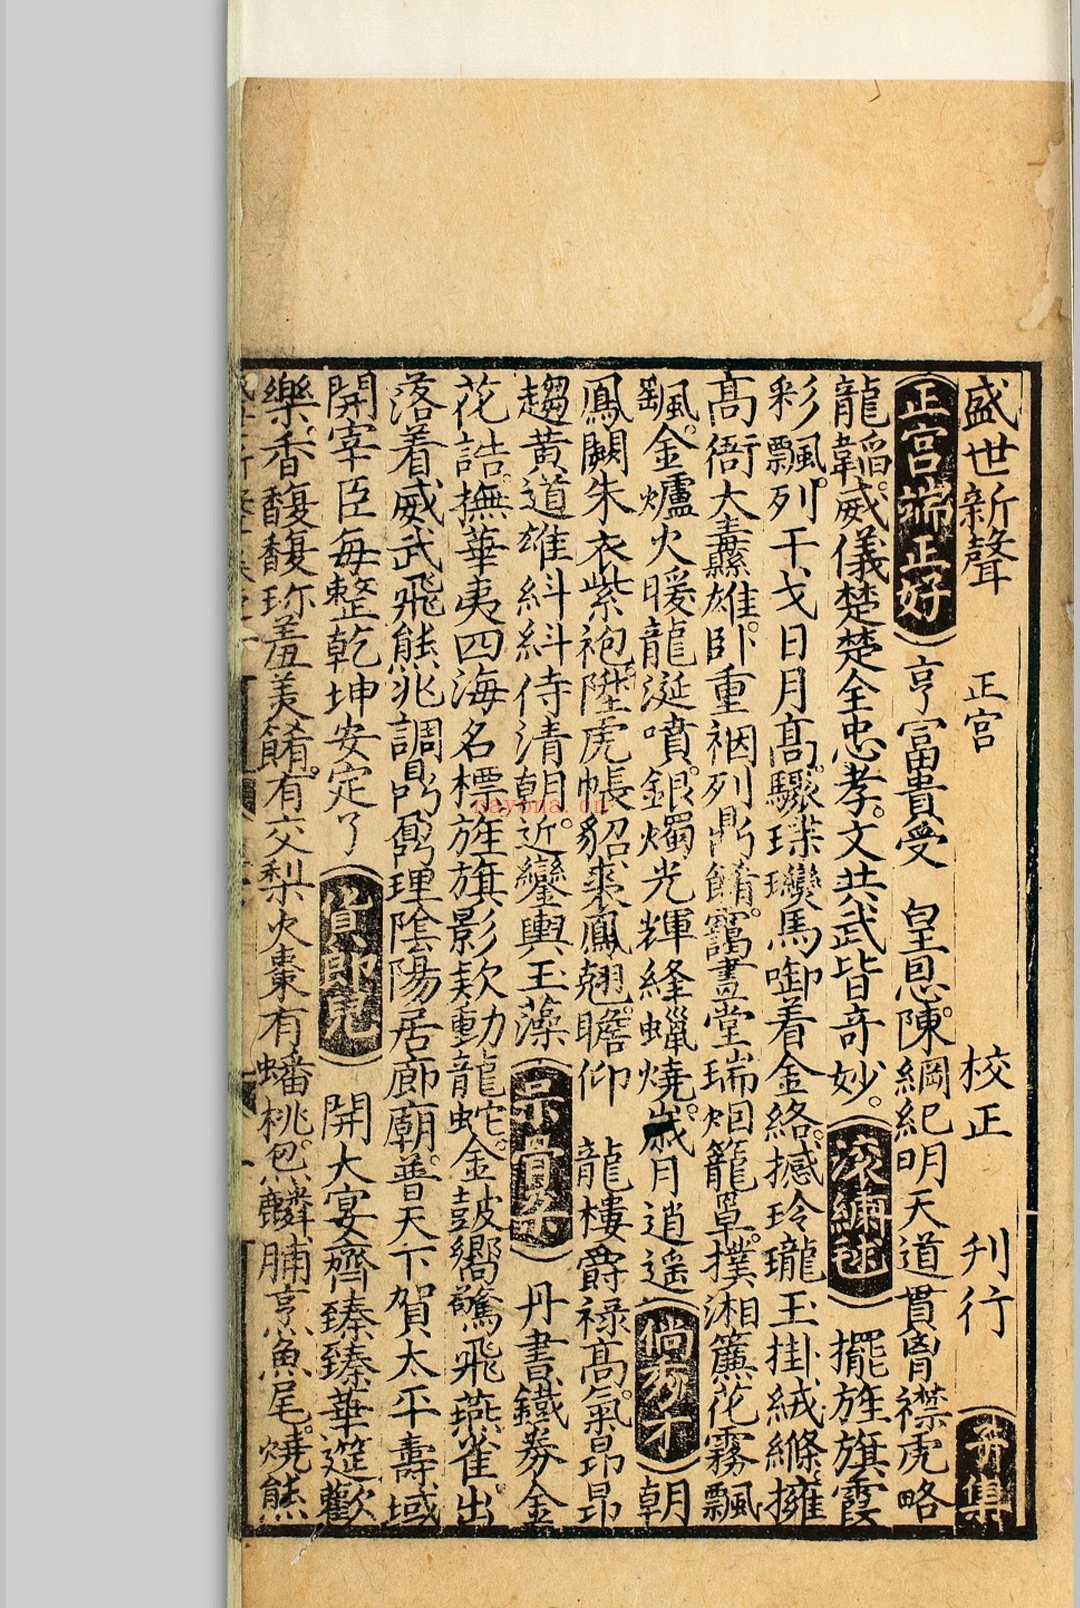 盛世新聲 正宮 校正 刋行 子集
正宮端正好 亨富貴受 皇恩陳綱紀明天道貫胷襟虎略
龍韜威儀楚楚全忠孝文共武皆竒妙 滾綉毬 擺旌旗霞
彩飄列干戈日月髙驟琭瓏馬啣着金絡撼玲瓏玉掛絨縧擁
髙衙大纛雄卧重裀列鼎餚靄畫堂瑞烟籠罩撲湘簾花霧飄
颻金爐火暖龍涎噴銀燭光輝絳蠟燒歲月逍遥 倘秀才 朝
鳳闕朱衣紫袍陞虎帳貂裘鳳翹瞻仰 龍樓爵禄髙氣昂昂
趨黄道雄糾糾侍清朝近鑾輿玉藻 呆骨朶 丹書鐵券金
花誥撫華夷四海名標旌旗影欵動龍蛇金鼓嚮驚飛燕雀出
落着威武飛熊兆調鼎鼐理陰陽居廊廟普天下賀太平壽域
開宰臣每整乾坤安定了 貨郎兒 開大宴齊臻臻華筵歡
樂香馥馥珎羞美餚有交梨火棗有蟠桃炰麟脯烹魚尾燒熊
rayoua.cn